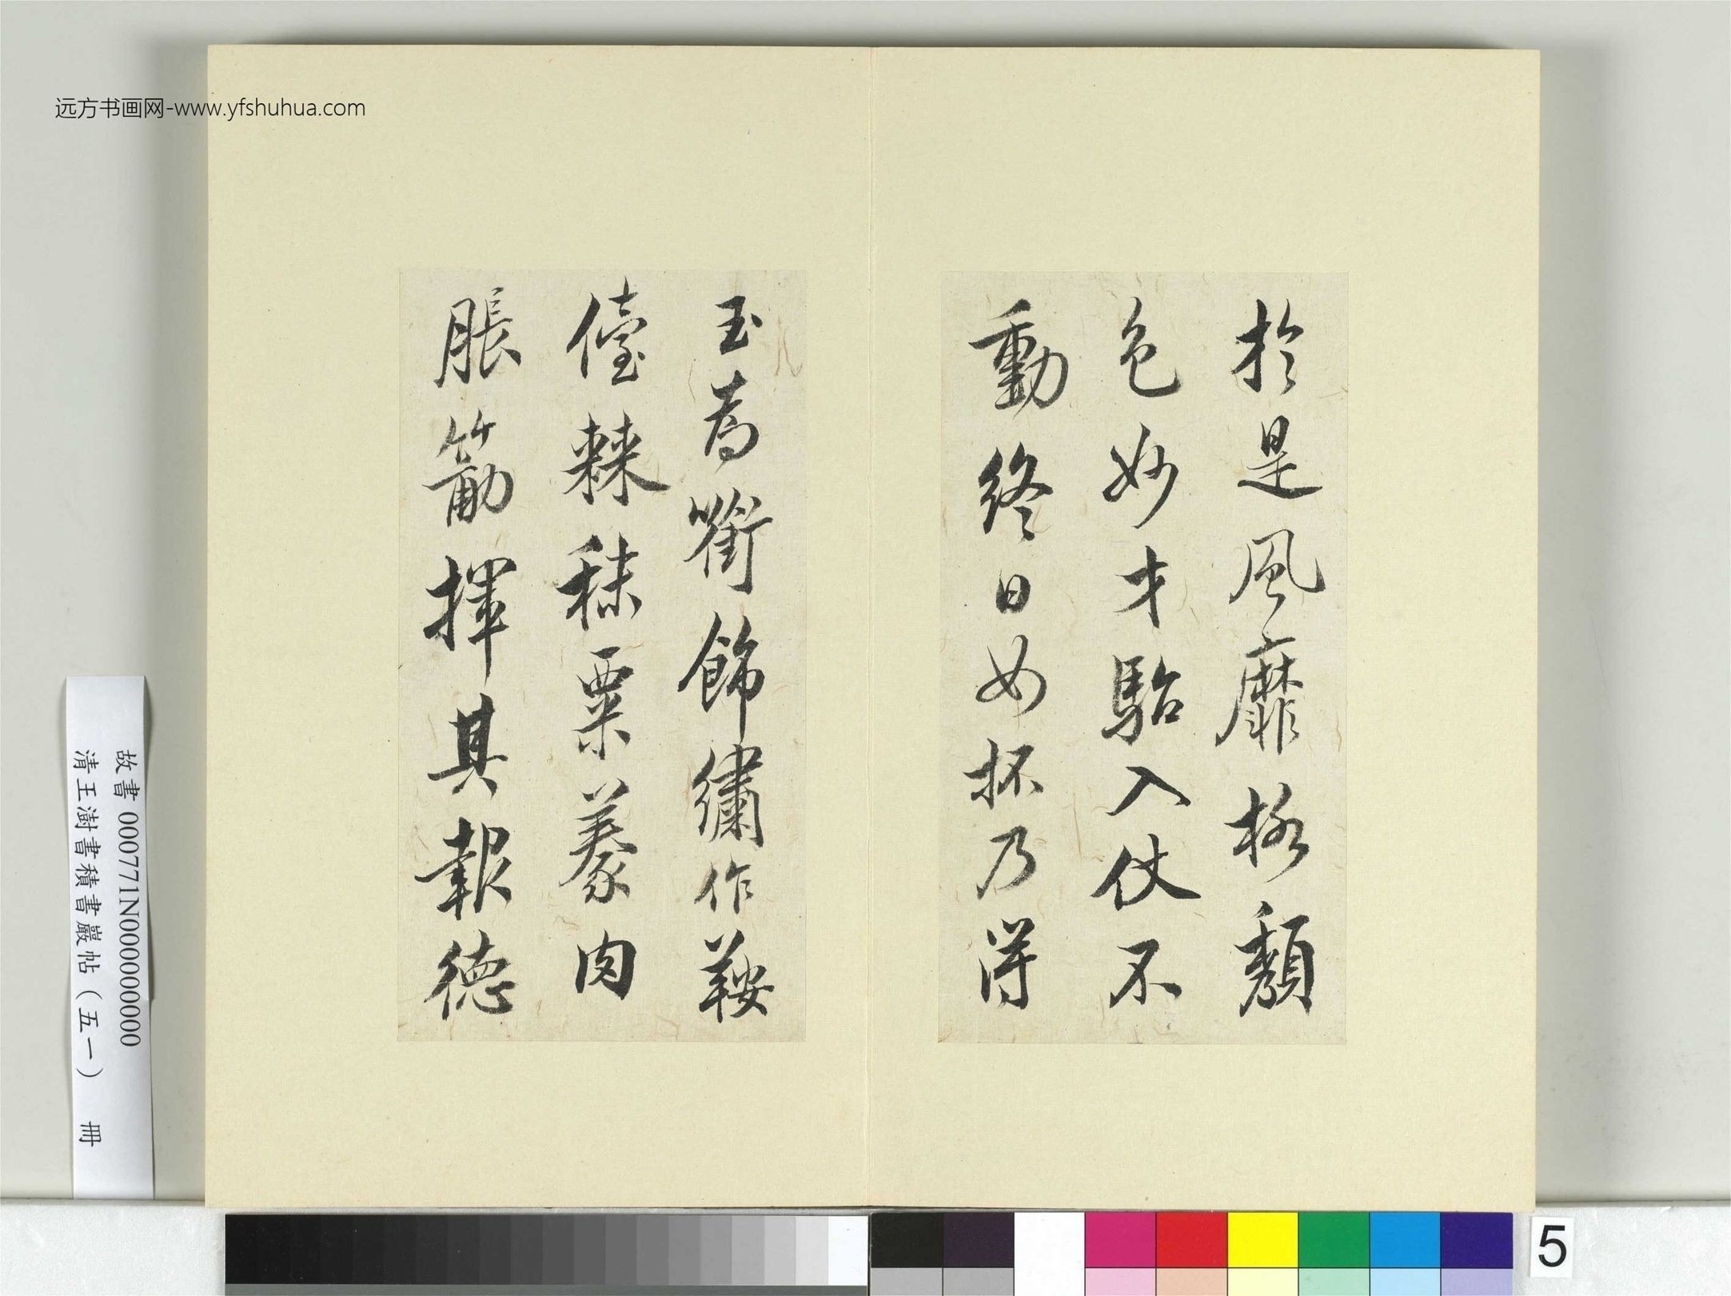 远方书画网-www.yfshuhua.com
於是風靡格頹
色妙才駘入仗不
動終日如坏乃得
玉為銜飾繡作鞍
儓棘秣粟豢肉
脹筋揮其報德
故書 000771N000000000
清王澍書積書巖帖(五一) 冊
5